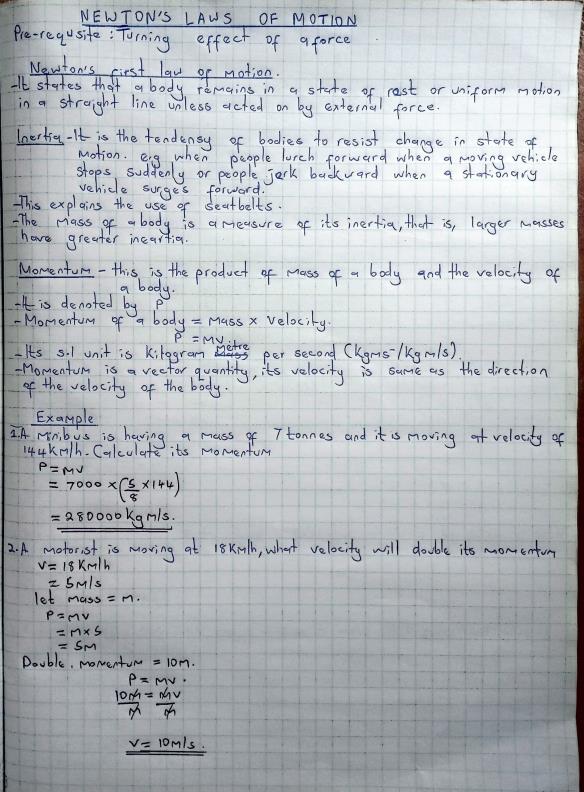 NEWTON'S LAWS OF MOTION
Pre-requsite : Turning effect of a force
Newton's first law of motion.
-It states that a body remains in a state of rest or uniform motion
in a straight line unless acted on by external force.
Inertia -It is the tendensy of bodies to resist change in state of
Motion. e.g when people lurch forward when a moving vehicle
stops suddenly or people jerk backward when a stationary
vehicle surges forward.
-This explains the use of seatbelts.
-The mass of a body is a measure of its inertia, that is, larger masses
have greater ineartia.
Momentum - this is the product of mass of a body and the velocity of
a body.
-It is denoted by P
-Momentum of a body = Mass x Velocity.
P = MV.
-Its s.I unit is kilogram Metre per second (Kgms⁻/Kgm/s).
-Momentum is a vector quantity, its velocity is same as the direction
of the velocity of the body.
Example
1.A Minibus is having a mass of 7 tonnes and it is moving at velocity of
144km/h. Calculate its momentum
P = MV
= 7000 x (5/8 x 144)
= 280000 kgm/s.
2.A motorist is moving at 18Km/h, what velocity will double its momentum
V = 18 Km/h
= 5m/s
let mass = m.
P = MV
= m x 5
= 5m
Double. momentum = 10m.
P = mv.
10m = mv
m m
V = 10m/s.